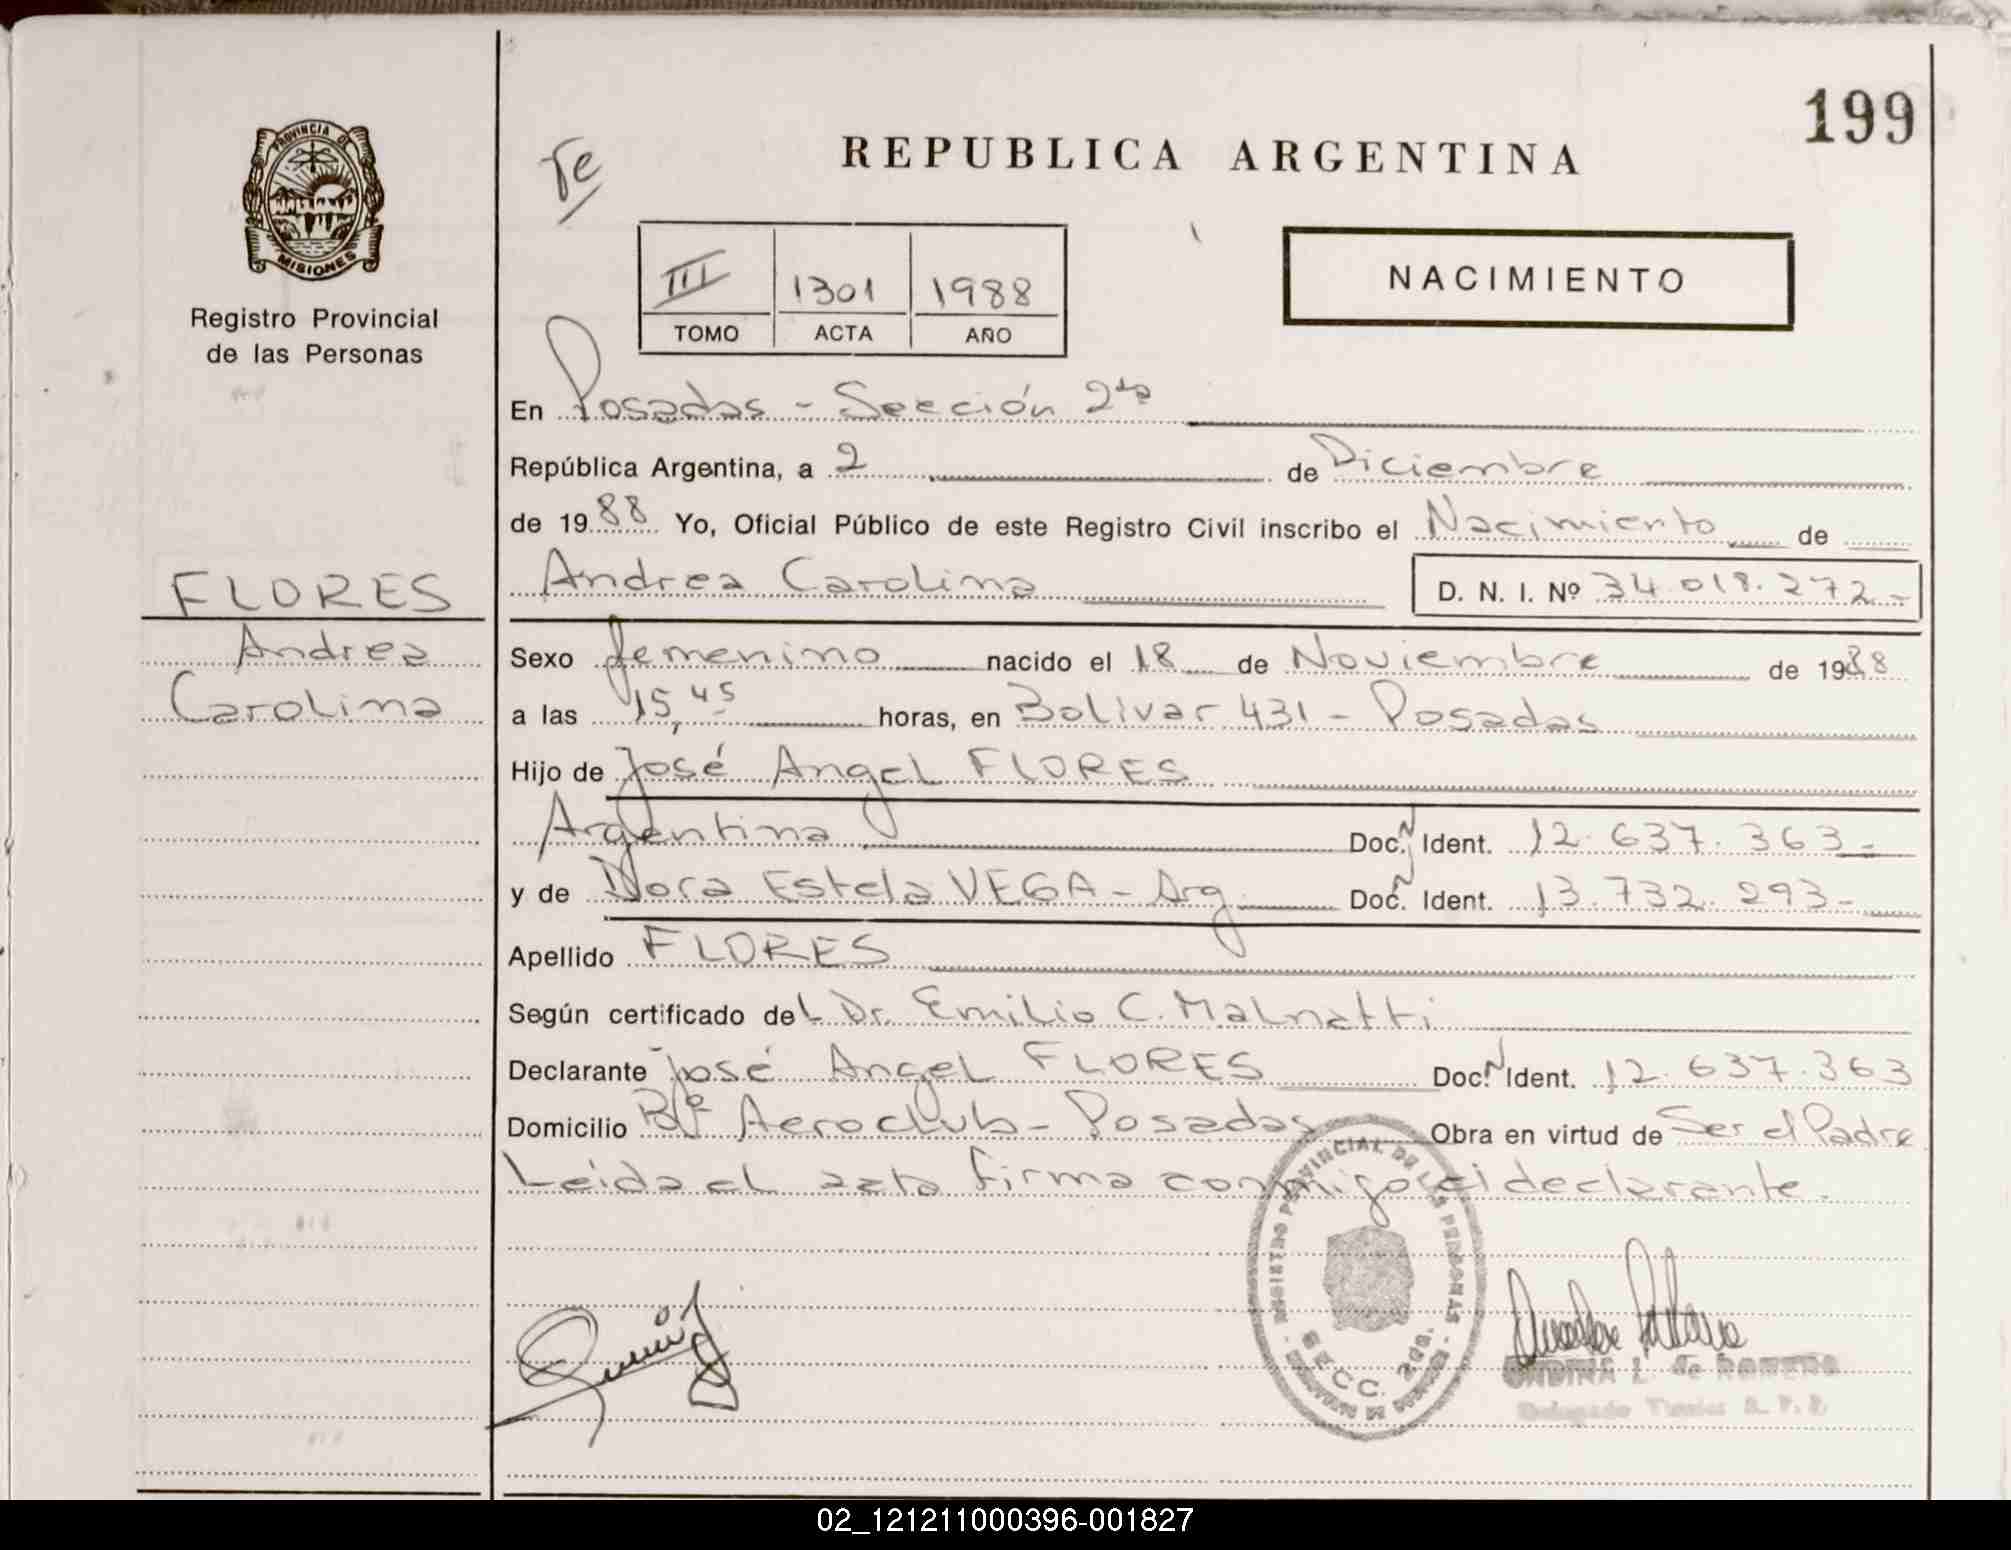 199
REPUBLICA ARGENTINA
PROVINCIA DE
MISIONES
Registro Provincial
de las Personas
III 1301 1988
TOMO ACTA AÑO
NACIMIENTO
En Posadas - Sección 2da
República Argentina, a 2 de Diciembre
de 1988 Yo, Oficial Público de este Registro Civil inscribo el Nacimiento de
Andrea Carolina D. N. I. Nº 34.018.272-
FLORES
Andrea
Carolina
Sexo femenino nacido el 18 de Noviembre de 1988
a las 15,45 horas, en Bolivar 431 - Posadas
Hijo de José Angel FLORES
Argentina Doc. Ident. 12.637.363-
y de Nora Estela VEGA - Arg. Doc. Ident. 13.732.293-
Apellido FLORES
Según certificado del Dr. Emilio C. Malnatti
Declarante José Angel FLORES Doc. Ident. 12.637.363
Domicilio Bº Aeroclub - Posadas Obra en virtud de Ser el Padre
Leida el acta firma conmigo el declarante.
REGISTRO PROVINCIAL DE LAS PERSONAS
SECC. 2da.
ONDINA L. de ROMERO
02_121211000396-001827